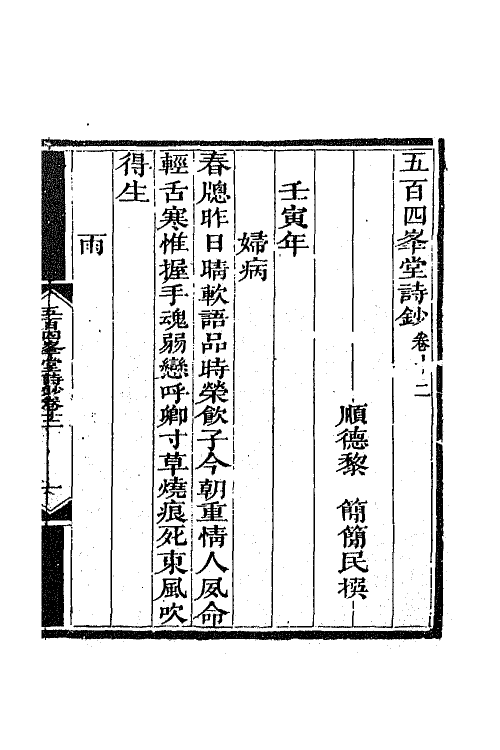 五百四峯堂詩鈔卷十二
順德黎　簡簡民撰
壬寅年
婦病
春牕昨日晴軟語品時榮飲子今朝重情人夙命
輕舌寒惟握手魂弱戀呼卿寸草燒痕死東風吹
得生
雨
五百四峯堂詩鈔卷十二
一